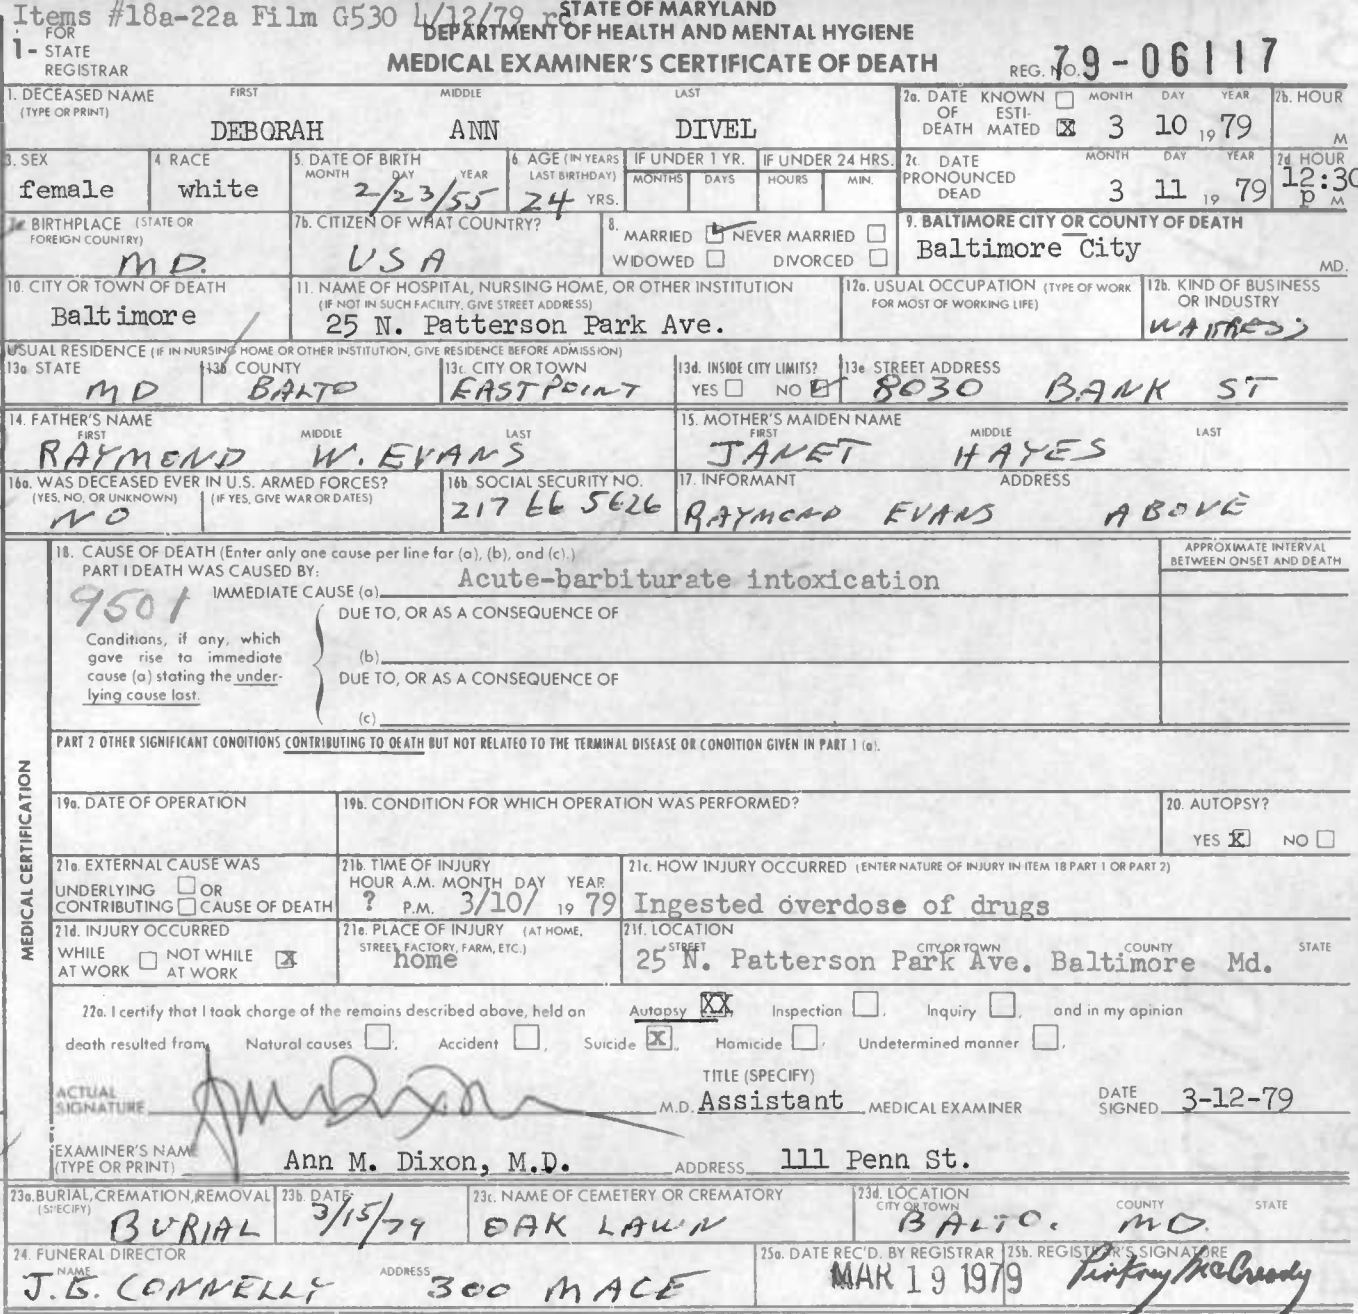 Items #18a-22a Film G530 4/12/79 rc
STATE OF MARYLAND
DEPARTMENT OF HEALTH AND MENTAL HYGIENE
MEDICAL EXAMINER'S CERTIFICATE OF DEATH
FOR
1- STATE
REGISTRAR
REG. NO. 79-06117
1. DECEASED NAME FIRST MIDDLE LAST
(TYPE OR PRINT)
DEBORAH ANN DIVEL
2a. DATE KNOWN ☐ MONTH DAY YEAR 2b. HOUR
OF ESTI-
DEATH MATED ☒ 3 10 19 79 M
3. SEX 4. RACE 5. DATE OF BIRTH 6. AGE (IN YEARS IF UNDER 1 YR. IF UNDER 24 HRS.
MONTH DAY YEAR LAST BIRTHDAY) MONTHS DAYS HOURS MIN.
female white 2/23/55 24 YRS.
2c. DATE MONTH DAY YEAR 2d HOUR
PRONOUNCED
DEAD 3 11 19 79 12:30 p M
7a BIRTHPLACE (STATE OR
FOREIGN COUNTRY)
MD.
7b. CITIZEN OF WHAT COUNTRY?
USA
8. MARRIED ☑ NEVER MARRIED ☐
WIDOWED ☐ DIVORCED ☐
9. BALTIMORE CITY OR COUNTY OF DEATH
Baltimore City
MD.
10. CITY OR TOWN OF DEATH
Baltimore
11. NAME OF HOSPITAL, NURSING HOME, OR OTHER INSTITUTION
(IF NOT IN SUCH FACILITY, GIVE STREET ADDRESS)
25 N. Patterson Park Ave.
12a. USUAL OCCUPATION (TYPE OF WORK
FOR MOST OF WORKING LIFE)
12b. KIND OF BUSINESS
OR INDUSTRY
WAITRESS
USUAL RESIDENCE (IF IN NURSING HOME OR OTHER INSTITUTION, GIVE RESIDENCE BEFORE ADMISSION)
13a STATE 13b COUNTY 13c. CITY OR TOWN 13d. INSIDE CITY LIMITS? 13e STREET ADDRESS
MD BALTO EASTPOINT YES ☐ NO ☑ 8030 BANK ST
14. FATHER'S NAME
FIRST MIDDLE LAST
RAYMOND W. EVANS
15. MOTHER'S MAIDEN NAME
FIRST MIDDLE LAST
JANET HAYES
16a. WAS DECEASED EVER IN U.S. ARMED FORCES?
(YES, NO, OR UNKNOWN) (IF YES, GIVE WAR OR DATES)
NO
16b SOCIAL SECURITY NO.
217 66 5626
17. INFORMANT ADDRESS
RAYMOND EVANS ABOVE
MEDICAL CERTIFICATION
18. CAUSE OF DEATH (Enter only one cause per line for (a), (b), and (c).)
PART I DEATH WAS CAUSED BY:
APPROXIMATE INTERVAL
BETWEEN ONSET AND DEATH
9501
IMMEDIATE CAUSE (a) Acute-barbiturate intoxication
DUE TO, OR AS A CONSEQUENCE OF
Conditions, if any, which
gave rise to immediate
cause (a) stating the under-
lying cause last.
(b)
DUE TO, OR AS A CONSEQUENCE OF
(c)
PART 2 OTHER SIGNIFICANT CONDITIONS CONTRIBUTING TO DEATH BUT NOT RELATED TO THE TERMINAL DISEASE OR CONDITION GIVEN IN PART 1 (a).
19a. DATE OF OPERATION 19b. CONDITION FOR WHICH OPERATION WAS PERFORMED? 20. AUTOPSY?
YES ☒ NO ☐
21a. EXTERNAL CAUSE WAS
UNDERLYING ☐ OR
CONTRIBUTING ☐ CAUSE OF DEATH
21b. TIME OF INJURY
HOUR A.M. MONTH DAY YEAR
? P.M. 3/10/ 19 79
21c. HOW INJURY OCCURRED (ENTER NATURE OF INJURY IN ITEM 18 PART 1 OR PART 2)
Ingested overdose of drugs
21d. INJURY OCCURRED
WHILE NOT WHILE
AT WORK ☐ AT WORK ☒
21e. PLACE OF INJURY (AT HOME,
STREET, FACTORY, FARM, ETC.)
home
21f. LOCATION
STREET CITY OR TOWN COUNTY STATE
25 N. Patterson Park Ave. Baltimore Md.
22a. I certify that I took charge of the remains described above, held an Autopsy ☒, Inspection ☐, Inquiry ☐, and in my opinion
death resulted from Natural causes ☐, Accident ☐, Suicide ☒, Homicide ☐, Undetermined manner ☐,
TITLE (SPECIFY)
ACTUAL
SIGNATURE Ann M Dixon M.D. Assistant MEDICAL EXAMINER DATE
SIGNED 3-12-79
EXAMINER'S NAME
(TYPE OR PRINT) Ann M. Dixon, M.D. ADDRESS 111 Penn St.
23a. BURIAL, CREMATION, REMOVAL 23b. DATE 23c. NAME OF CEMETERY OR CREMATORY 23d. LOCATION
(SPECIFY) CITY OR TOWN COUNTY STATE
BURIAL 3/15/79 OAK LAWN BALTO. MD.
24. FUNERAL DIRECTOR
NAME ADDRESS
J.G. CONNELLY 300 MACE
25a. DATE REC'D. BY REGISTRAR
MAR 19 1979
25b. REGISTRAR'S SIGNATURE